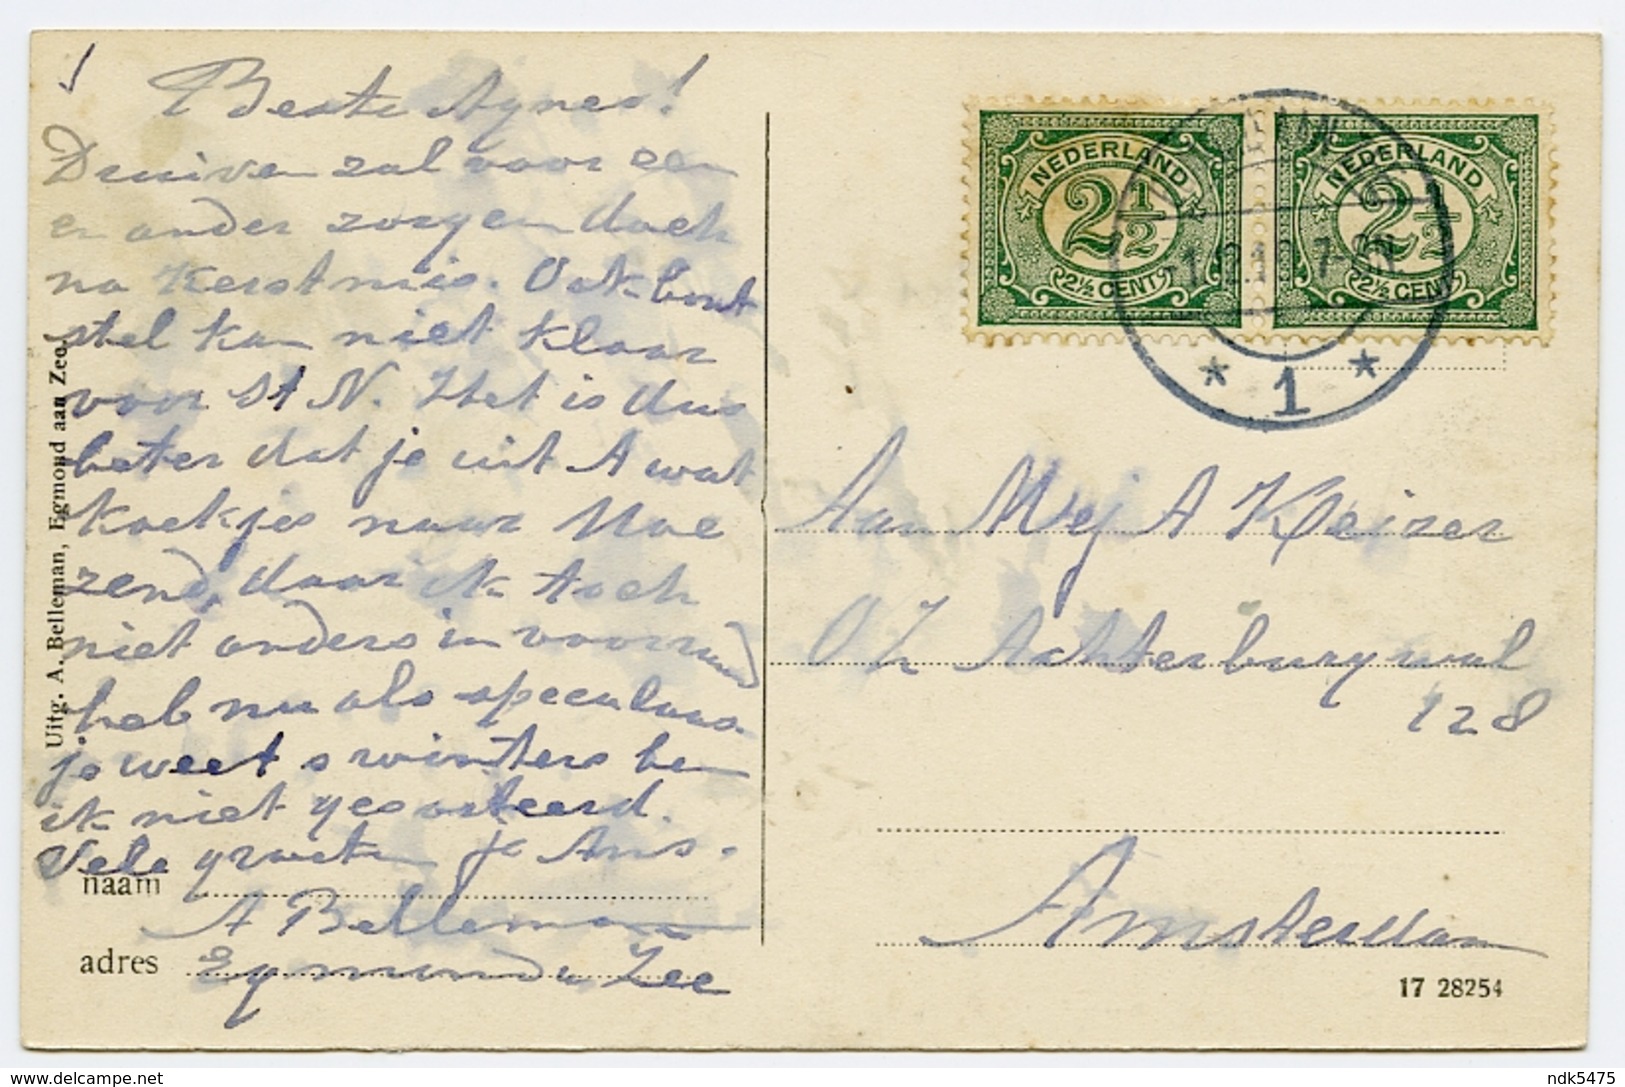 Beste Agnes!
Druiven zal voor een
en ander zorgen doch
na Kerstmis. Ook bont
stel kan niet klaar
voor St N. Het is dus
beter dat je uit A wat
koekjes naar Moe
zend, daar ik toch
niet anders in voorraad
heb nu als speculaas.
je weet s winters ben
ik niet gesorteerd.
Vele groeten je Ans.
naam A Belleman
adres Egmond a Zee
Uitg. A. Belleman, Egmond aan Zee.
NEDERLAND
2 1/2
2½ CENT
NEDERLAND
2 1/2
2½ CENT
1
Aan Mej A Keizer
O Z Achterburgwal
128
Amsterdam
17 28254
delcampe.net
ndk5475